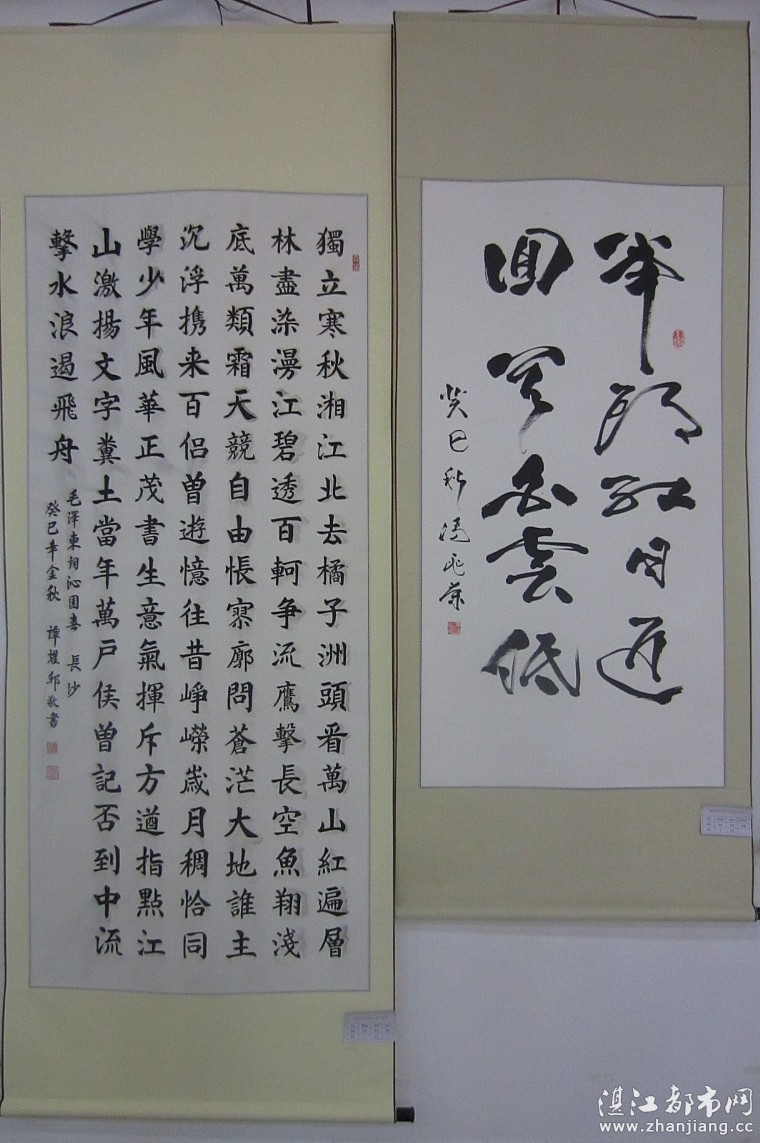 舉頭紅日近
回首白雲低
癸巳秋馮
獨立寒秋湘江北去橘子洲頭看萬山紅遍層
林盡染漫江碧透百舸争流鷹擊長空魚翔淺
底萬類霜天競自由悵寥廓問蒼茫大地誰主
沉浮携来百侣曾遊憶往昔崢嶸歲月稠恰同
學少年風華正茂書生意氣揮斥方遒指點江
山激揚文字糞土當年萬戶侯曾記否到中流
擊水浪遏飛舟
毛澤東詞沁園春 長沙
癸巳年金秋 譚耀邦敬書
湛江都市网
www.zhanjiang.cc